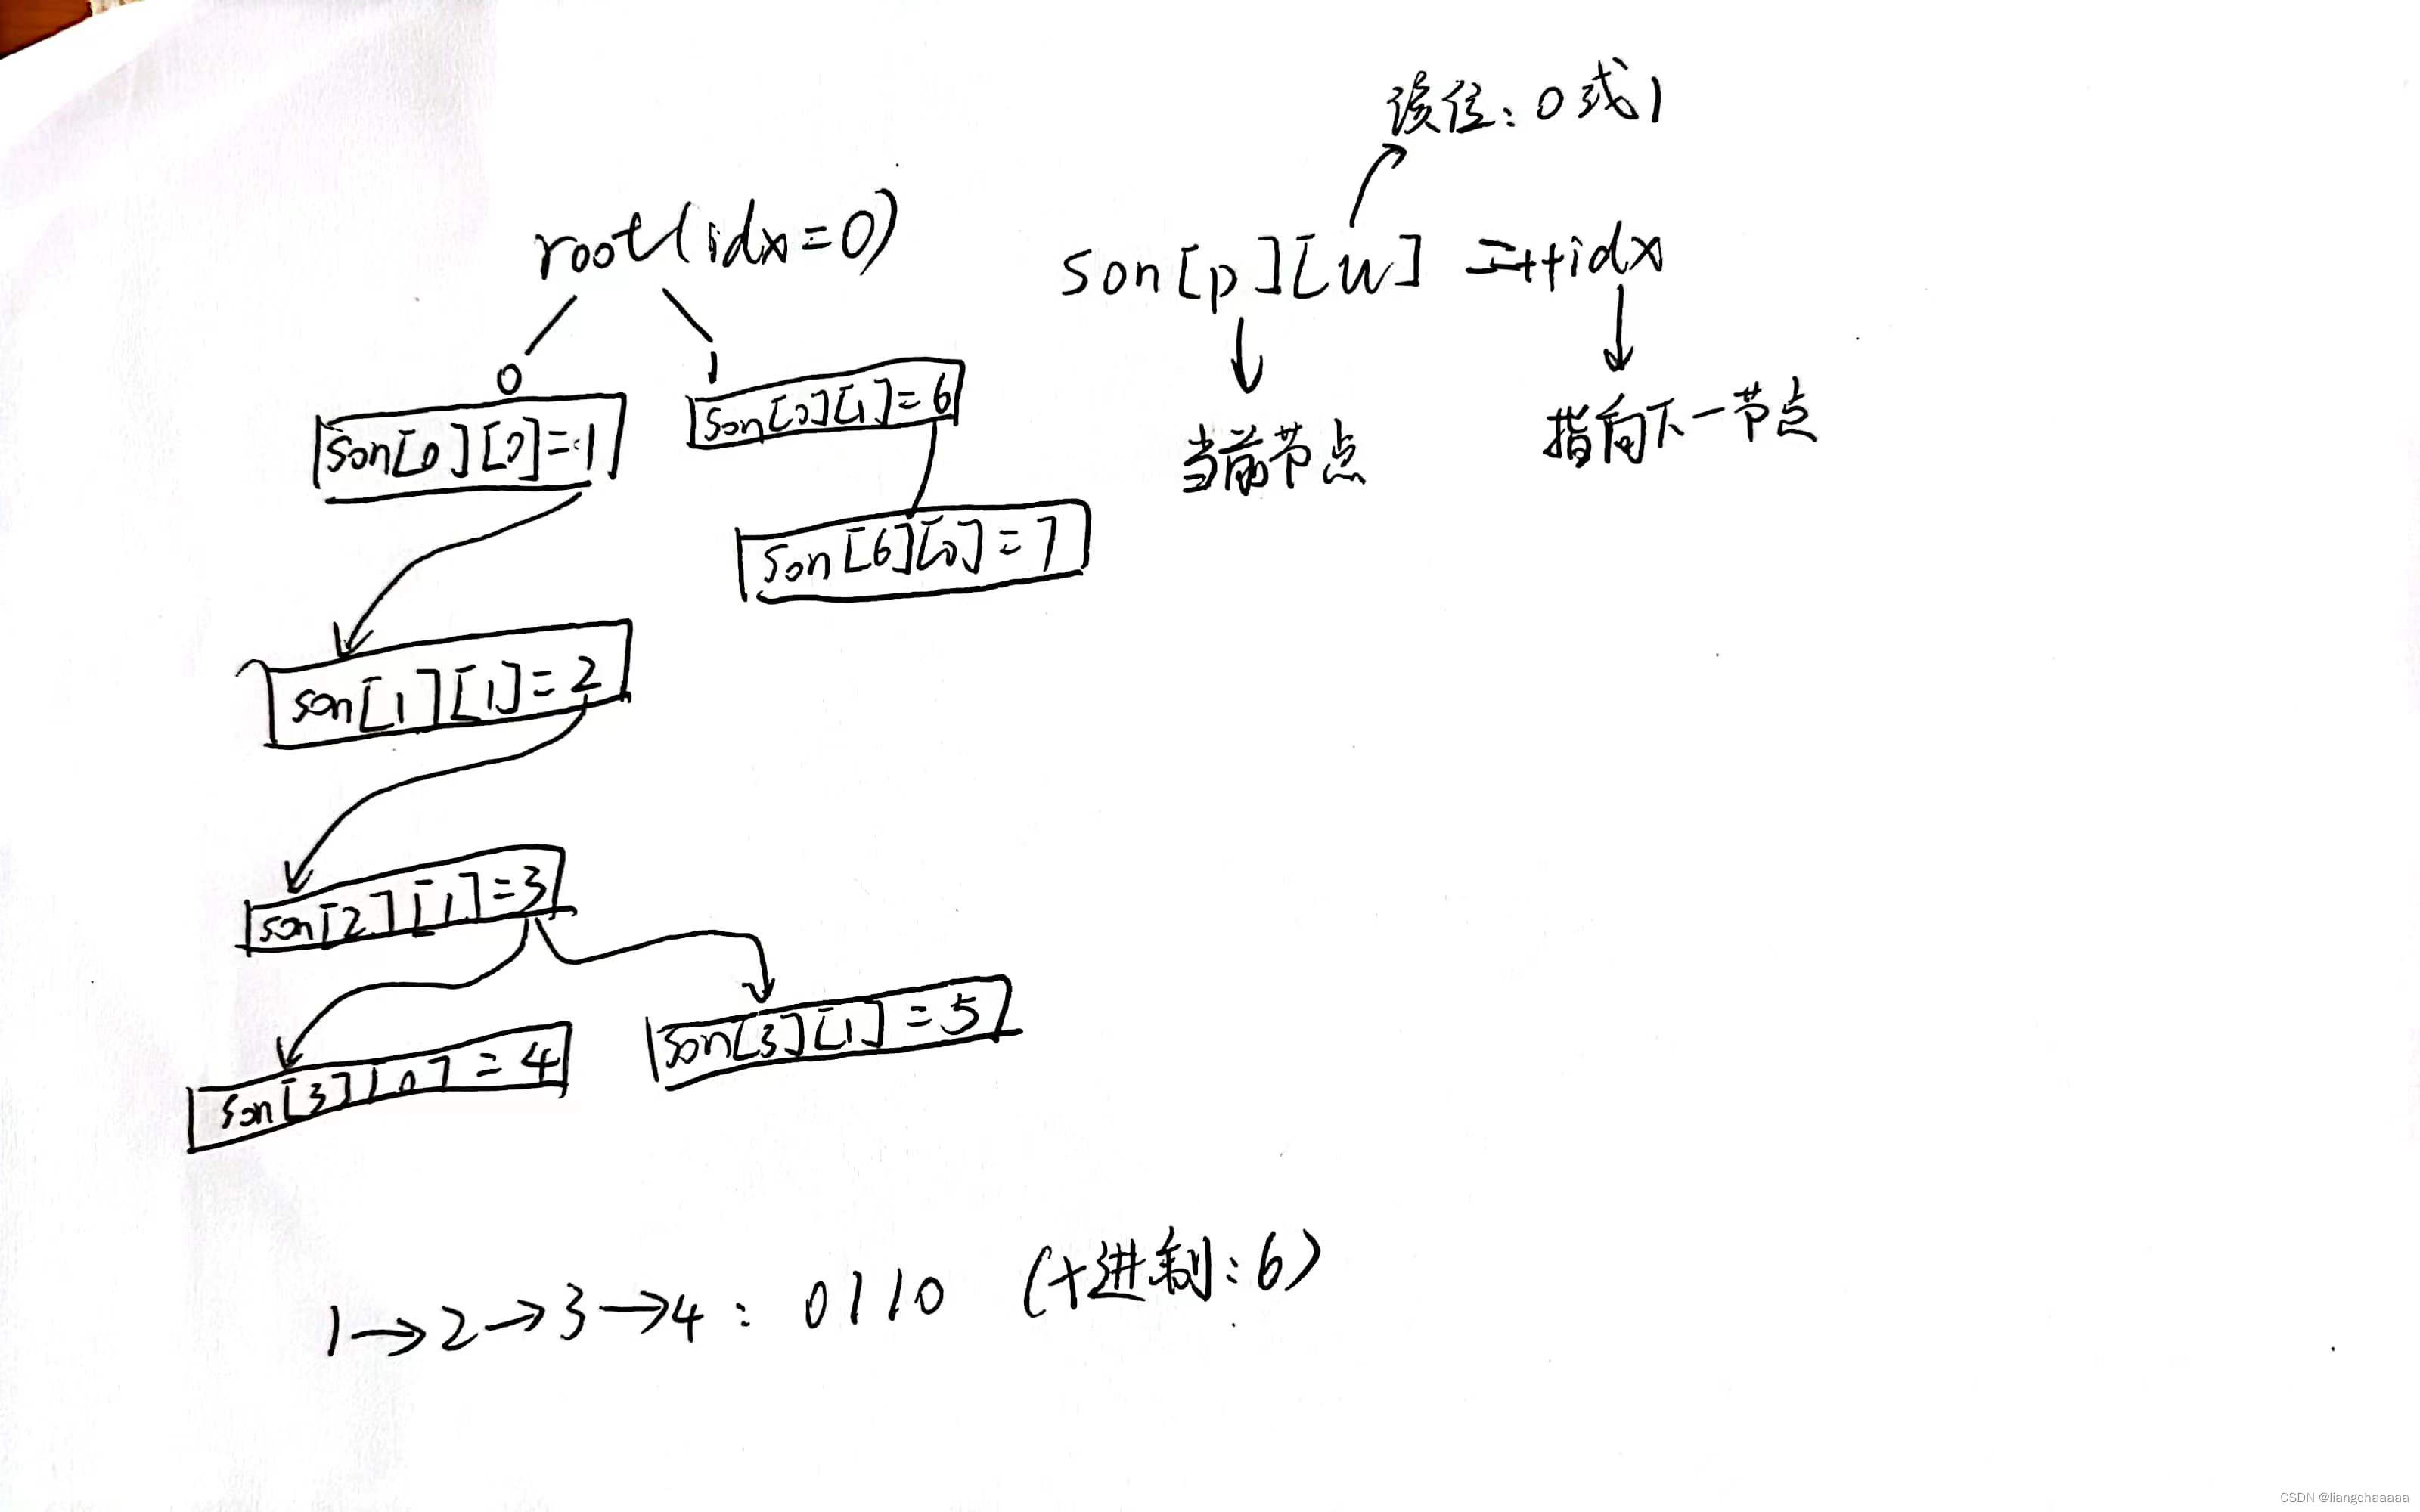 该位：0或1
root(idx=0)
son[p][u] =++idx
0
1
son[0][0]=1
son[0][1]=6
当前节点
指向下一节点
son[6][0]=7
son[1][1]=2
son[2][1]=3
son[3][0]=4
son[3][1]=5
1→2→3→4：0110 (十进制：6)
CSDN @liangchaaaaa